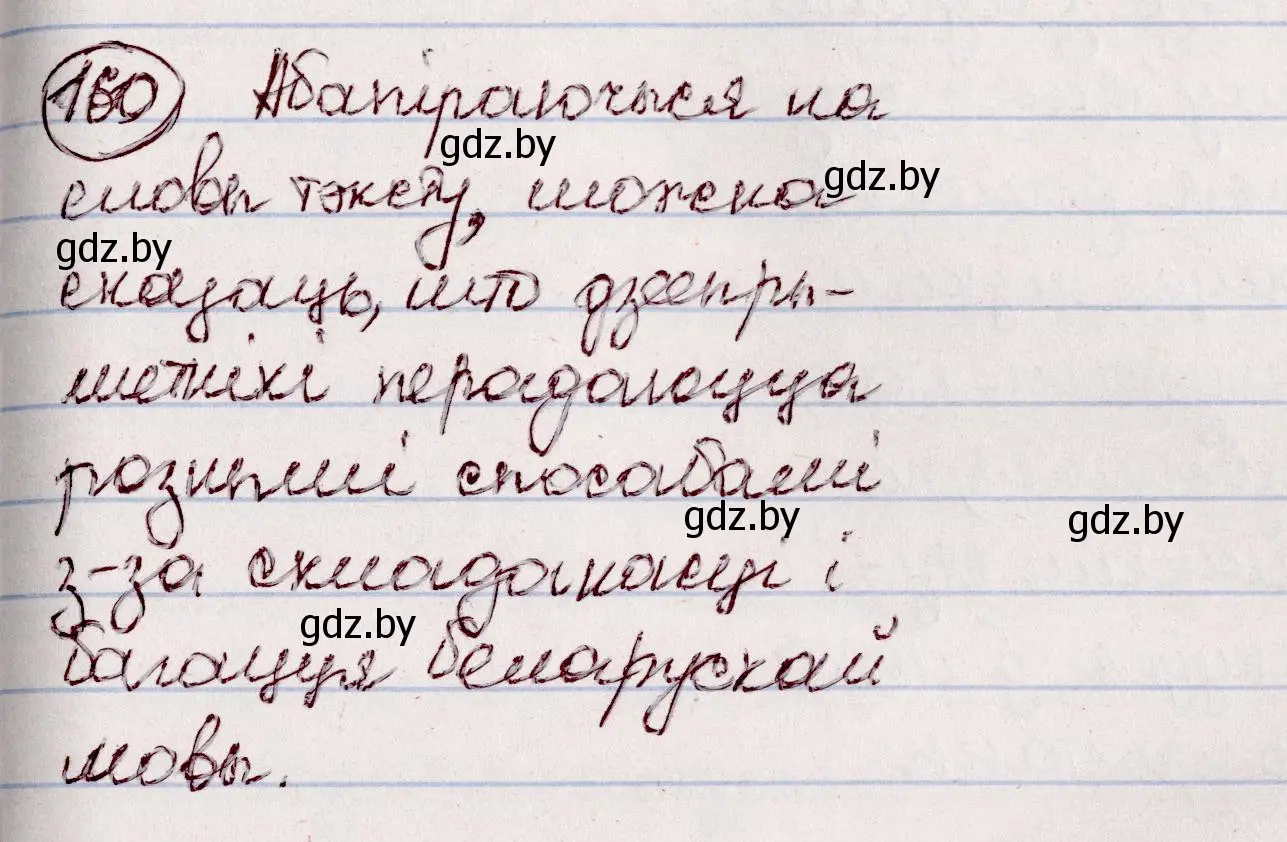 160 Абапіраючыся на
gdz.by
словы тэксту, можна
gdz.by
gdz.by
сказаць, што дзеепры-
метнікі перадаюцца
рознымі спосабамі
gdz.by
gdz.by
з-за складанасці і
gdz.by
багацця беларускай
мовы.